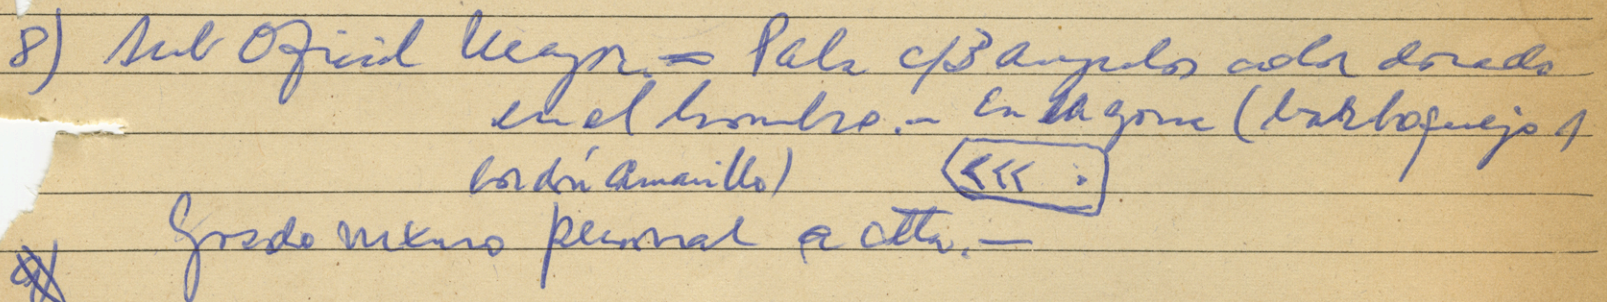 8) Sub Oficial Mayor.= Pala c/3 angulos color dorado
en el hombro.- En la gorra (barboquejo 1
cordón amarillo) <<< .
Grado maximo personal a
9)